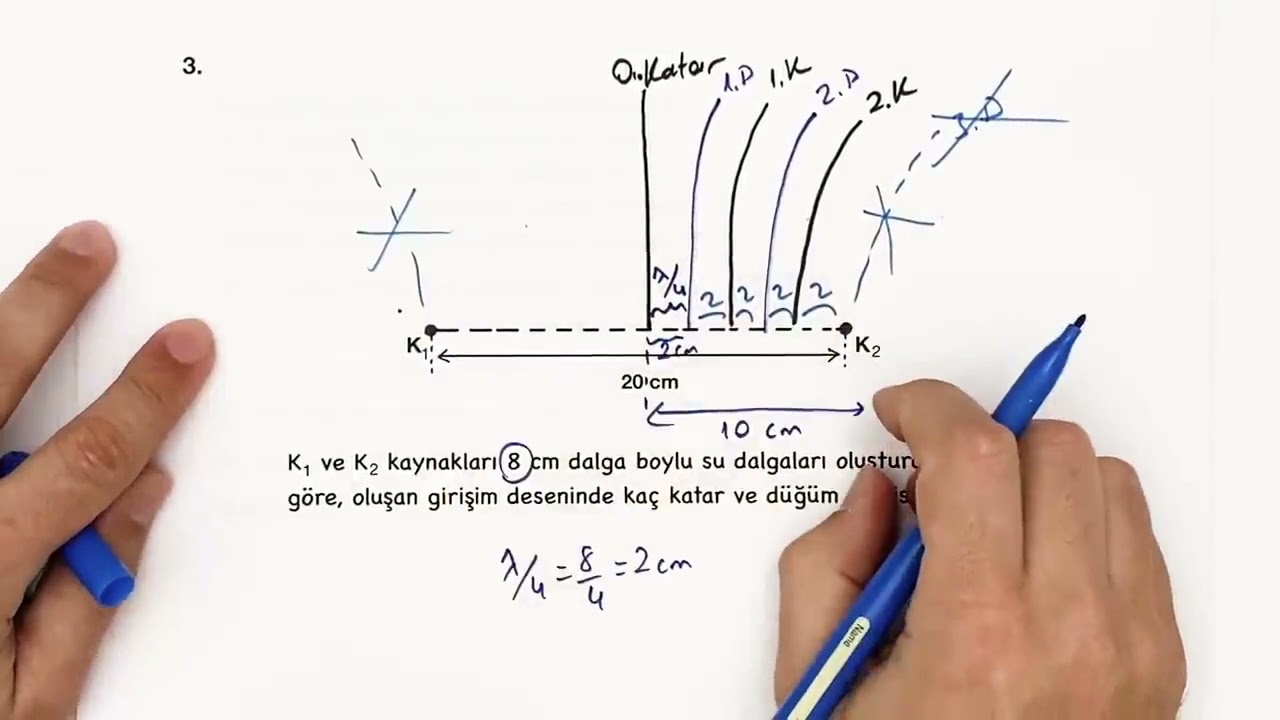 3.
0.Katar
1.D
1.K
2.D
2.K
3.D
λ/4
2
2
2
2
2cm
K₁
K₂
20 cm
10 cm
K₁ ve K₂ kaynakları 8 cm dalga boylu su dalgaları
göre, oluşan girişim deseninde kaç katar ve düğüm
λ/4 = 8/4 = 2 cm
Name